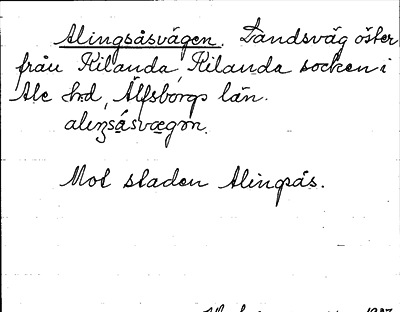 Alingsåsvägen. Landsväg öster
från Kilanda, Kilanda socken i
Ale hrd, Älfsborgs län.
aliŋsåsvægən.
Mot staden Alingsås.